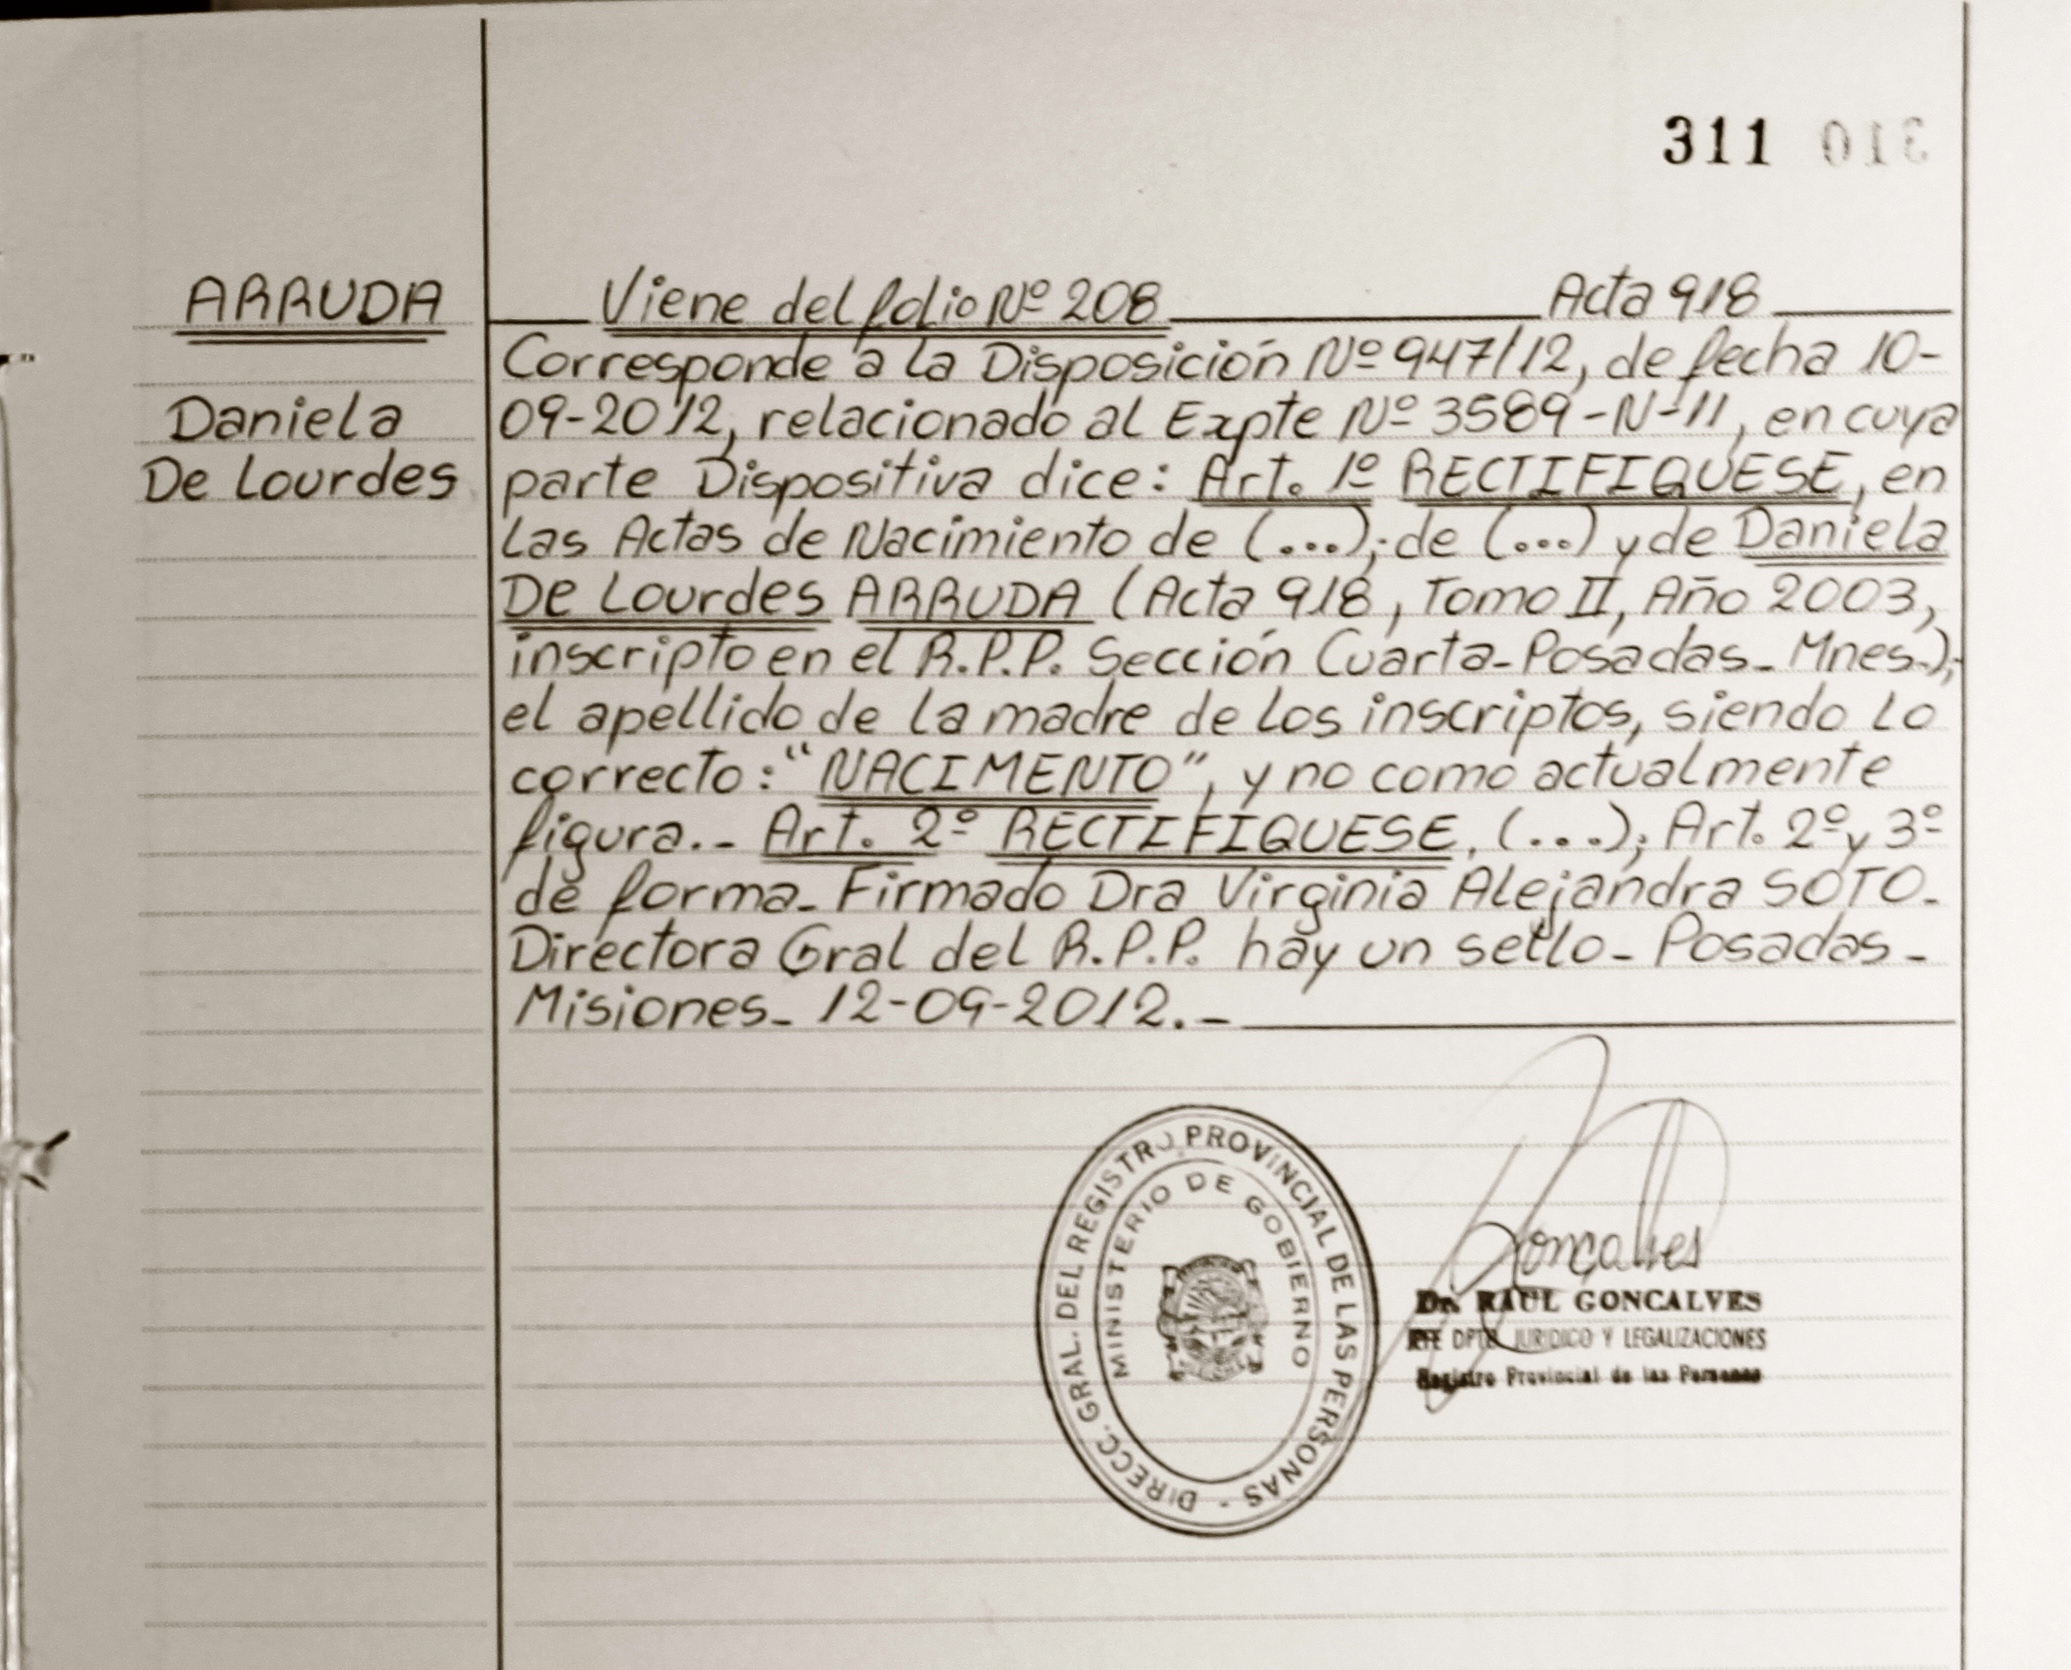 311 310
ARRUDA
Daniela
De Lourdes
Viene del folio Nº 208 Acta 918
Corresponde a la Disposición Nº 947/12, de fecha 10-
09-2012, relacionado al Expte Nº 3589-N-11, en cuya
parte Dispositiva dice: Art. 1º RECTIFIQUESE, en
las Actas de Nacimiento de (...); de (...) y de Daniela
De Lourdes ARRUDA (Acta 918, Tomo II, Año 2003,
inscripto en el R.P.P. Sección Cuarta-Posadas-Mnes.);
el apellido de la madre de los inscriptos, siendo lo
correcto: "NACIMENTO", y no como actualmente
figura.- Art. 2º RECTIFIQUESE. (...); Art. 2º y 3º
de forma- Firmado Dra Virginia Alejandra SOTO-
Directora Gral del R.P.P. hay un sello- Posadas-
Misiones- 12-09-2012.-
DIRECC. GRAL. DEL REGISTRO PROVINCIAL DE LAS PERSONAS -
MINISTERIO DE GOBIERNO
Gonçalves
Dr. RAUL GONCALVES
JEFE DPTO. JURIDICO Y LEGALIZACIONES
Registro Provincial de las Personas